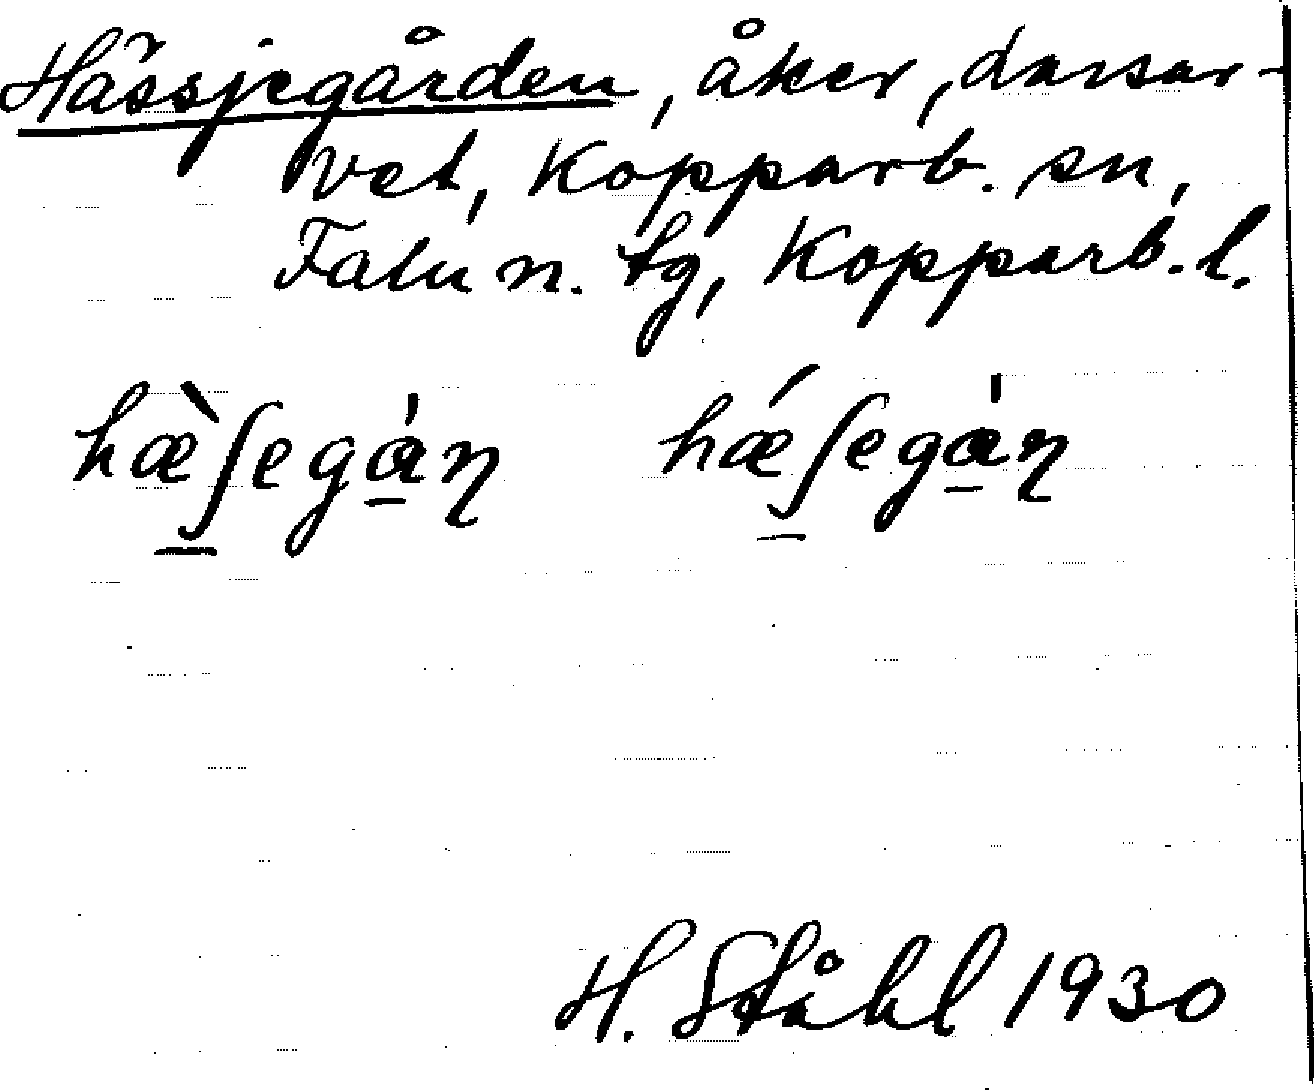 Hässjegården, åker, Dassar-
vet, Kopparb. sn,
Falu n. tg, Kopparb. l.
hæ̀ʃegα̇ɳ hǽʃegα̇ɳ
H. Ståhl 1930